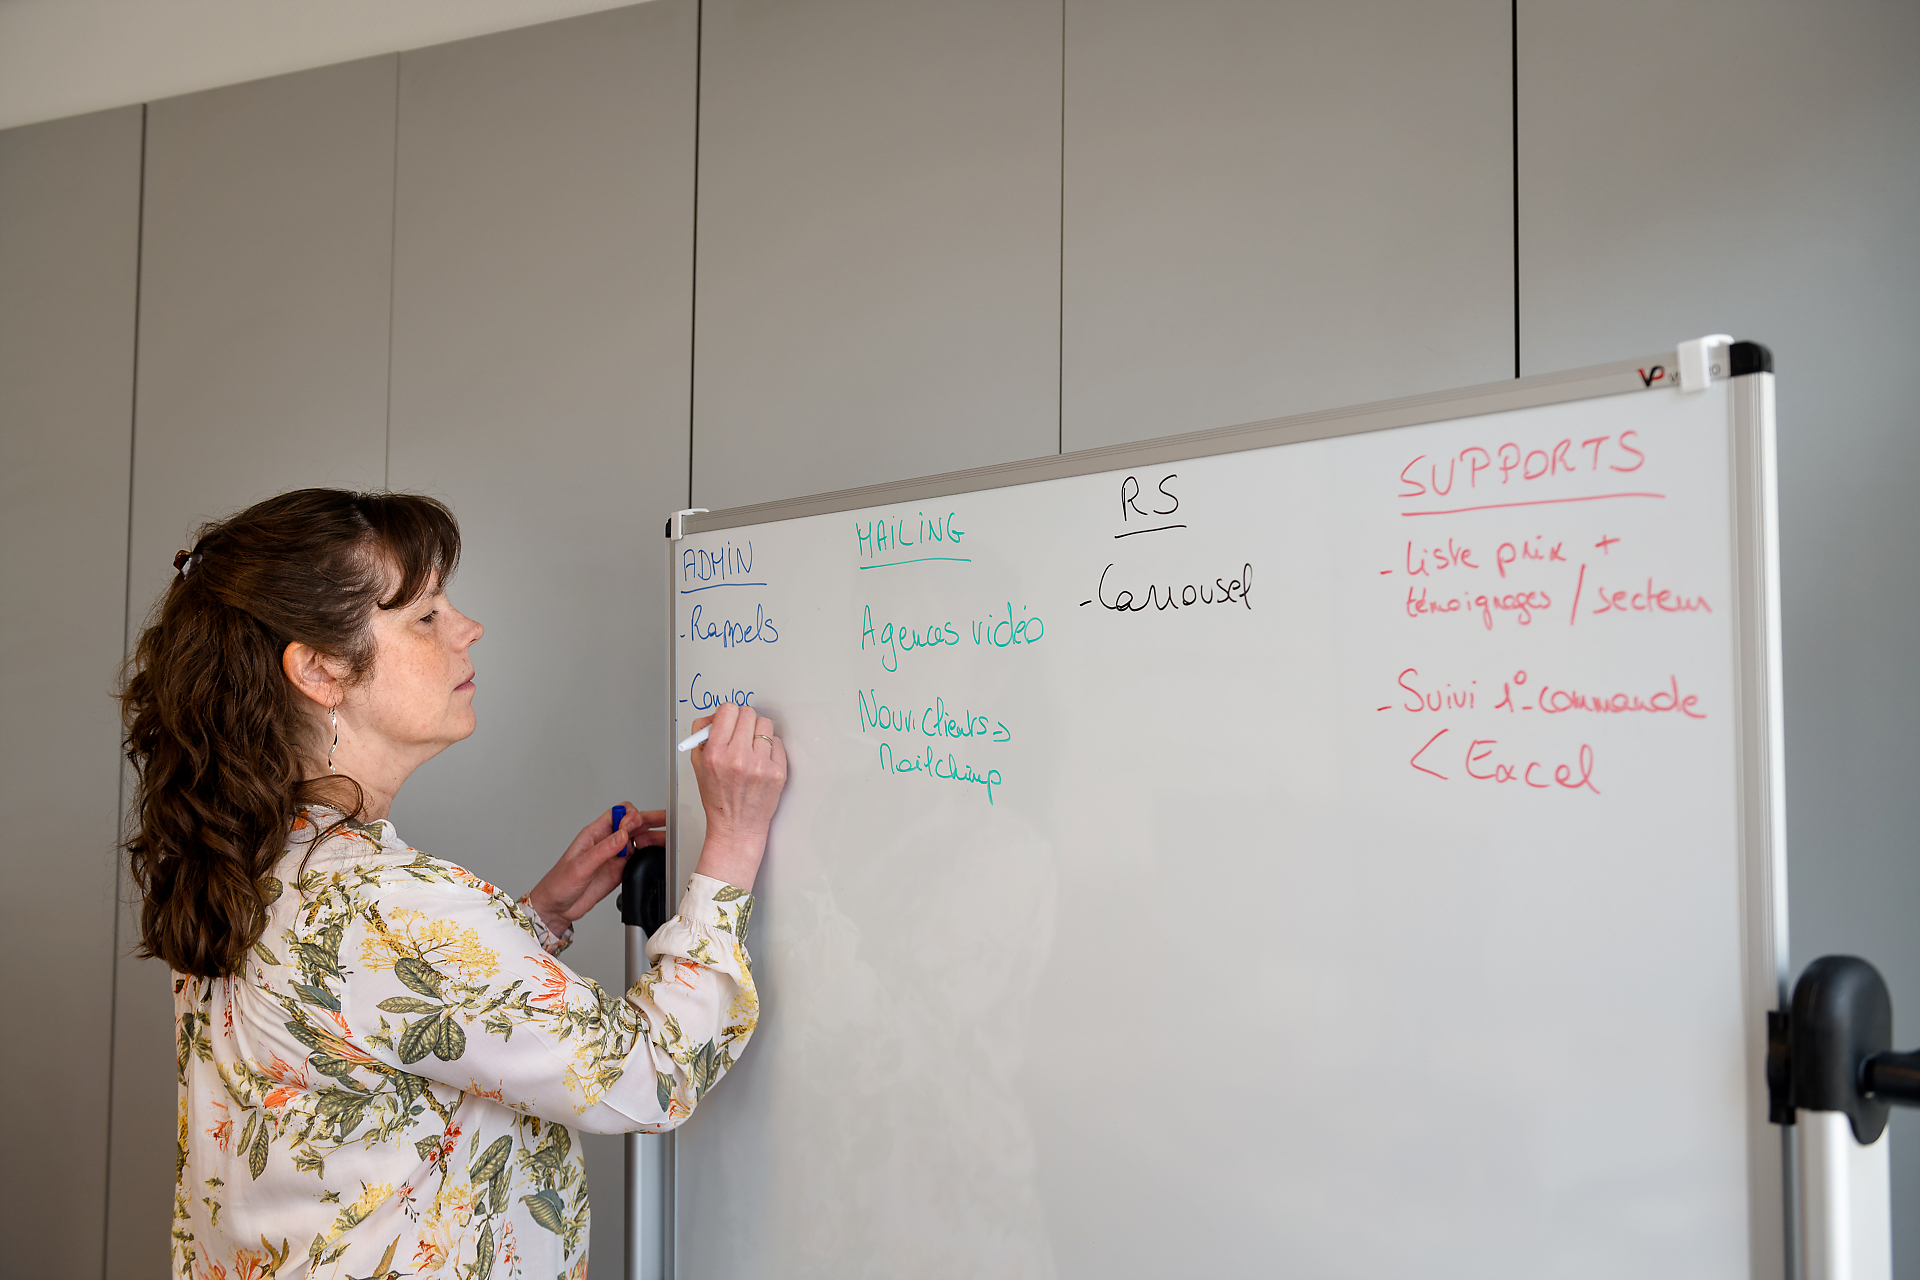 ADMIN
- Rappels
- Convoc
MAILING
Agences vidéo
Nouv. Clients =>
Mailchimp
RS
- Carrousel
SUPPORTS
- Liste prix +
témoignages / secteur
- Suivi 1° commande
< Excel
VP